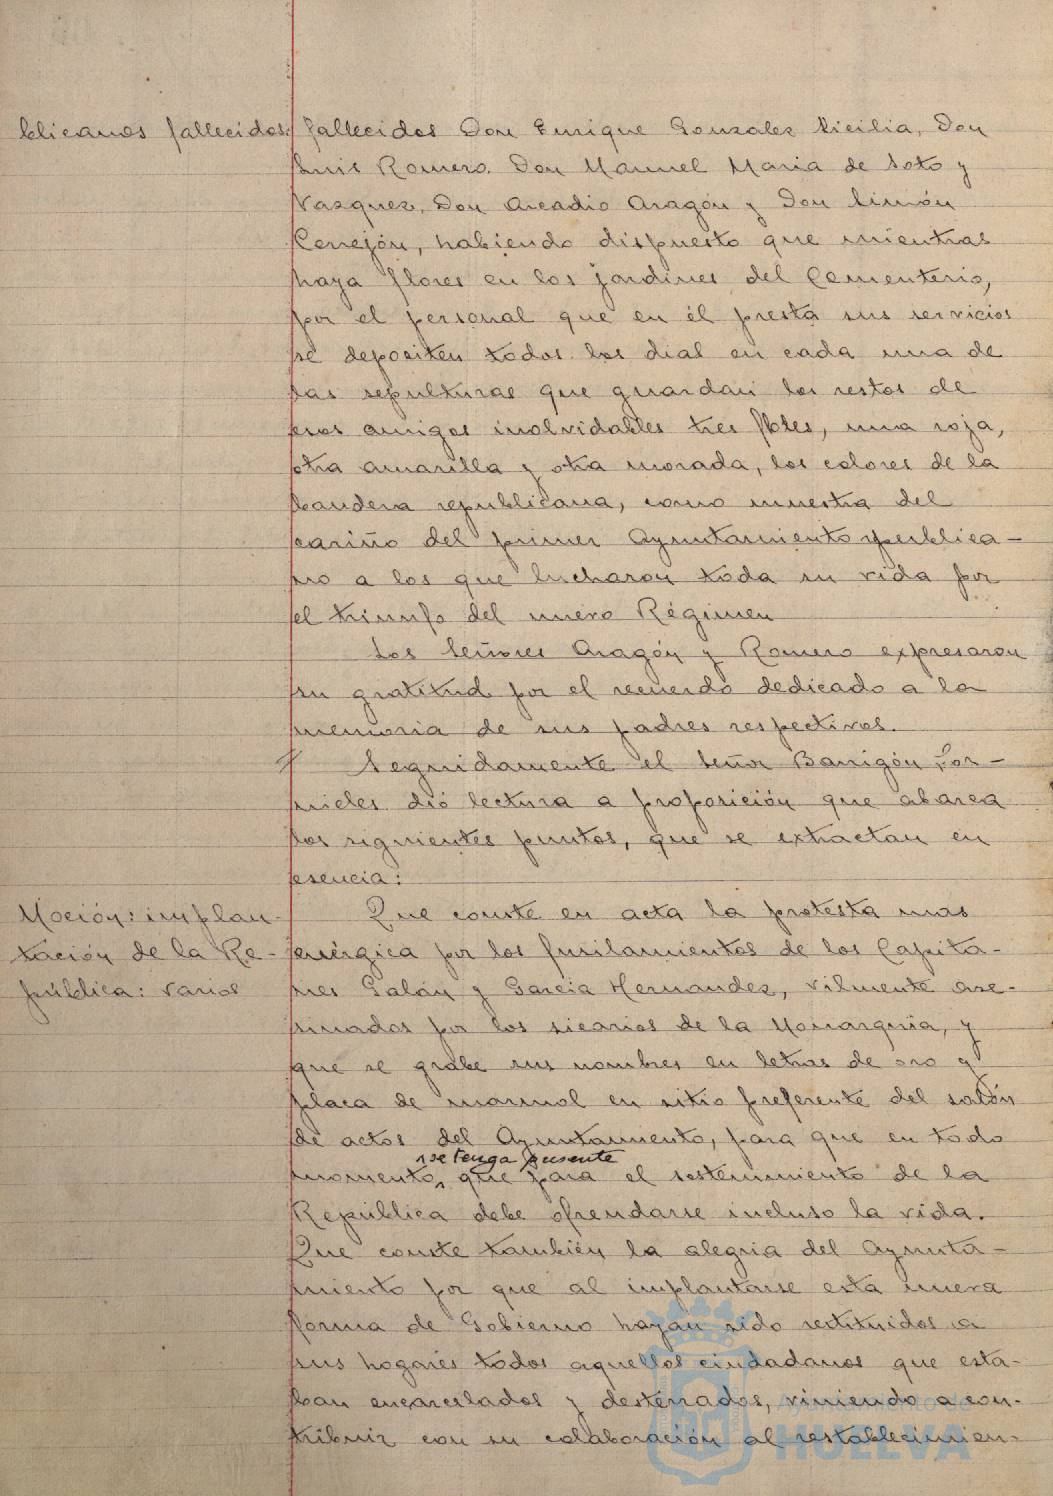 blicanos fallecidos: fallecidos Don Enrique Gonzalez Sicilia, Don
Luis Romero, Don Manuel Maria de Soto y
Vazquez, Don Arcadio Aragón y Don Simón
Cerrejón, habiendo dispuesto que mientras
haya flores en los jardines del Cementerio,
por el personal que en él presta sus servicios
se depositen todos los dias en cada una de
las sepulturas que guardan los restos de
esos amigos inolvidables tres flores, una roja,
otra amarilla y otra morada, los colores de la
bandera republicana, como muestra del
cariño del primer Ayuntamiento republica-
no a los que lucharon toda su vida por
el triunfo del nuevo Régimen
Los Señores Aragón y Romero expresaron
su gratitud por el recuerdo dedicado a la
memoria de sus padres respectivos.
Seguidamente el Señor Barrigón For-
nieles dió lectura a proposición que abarca
los siguientes puntos, que se extractan en
esencia:
Moción: implan-
tación de la Re-
pública: varios
Que conste en acta la protesta mas
enérgica por los fusilamientos de los Capita-
nes Galán y García Hernandez, vilmente ase-
sinados por los sicarios de la Monarquía, y
que se grabe sus nombres en letras de oro y
placa de marmol en sitio preferente del salón
de actos del Ayuntamiento, para que en todo
se tenga presente
momento, que para el sostenimiento de la
República debe ofrendarse incluso la vida.
Que conste también la alegria del Ayunta-
miento por que al implantarse esta nueva
forma de Gobierno hayan sido restituidos a
sus hogares todos aquellos ciudadanos que esta-
ban encarcelados y desterrados, viniendo a con-
tribuir con su colaboración al restablecimien-
Ayuntamiento de
HUELVA